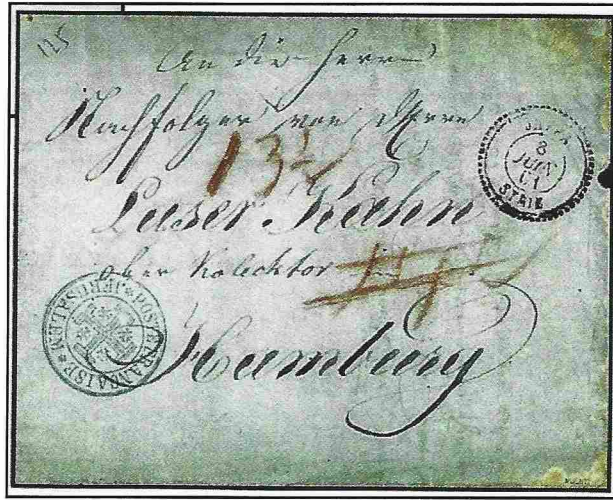 125
An die Herrn
Nachfolger von Herrn
13½
Laser Kaehn
ober Kolecktor
Hamburg
JAFFA
8
JUIN
61
SYRIE
POSTE FRANCAISE * JERUSALEM *